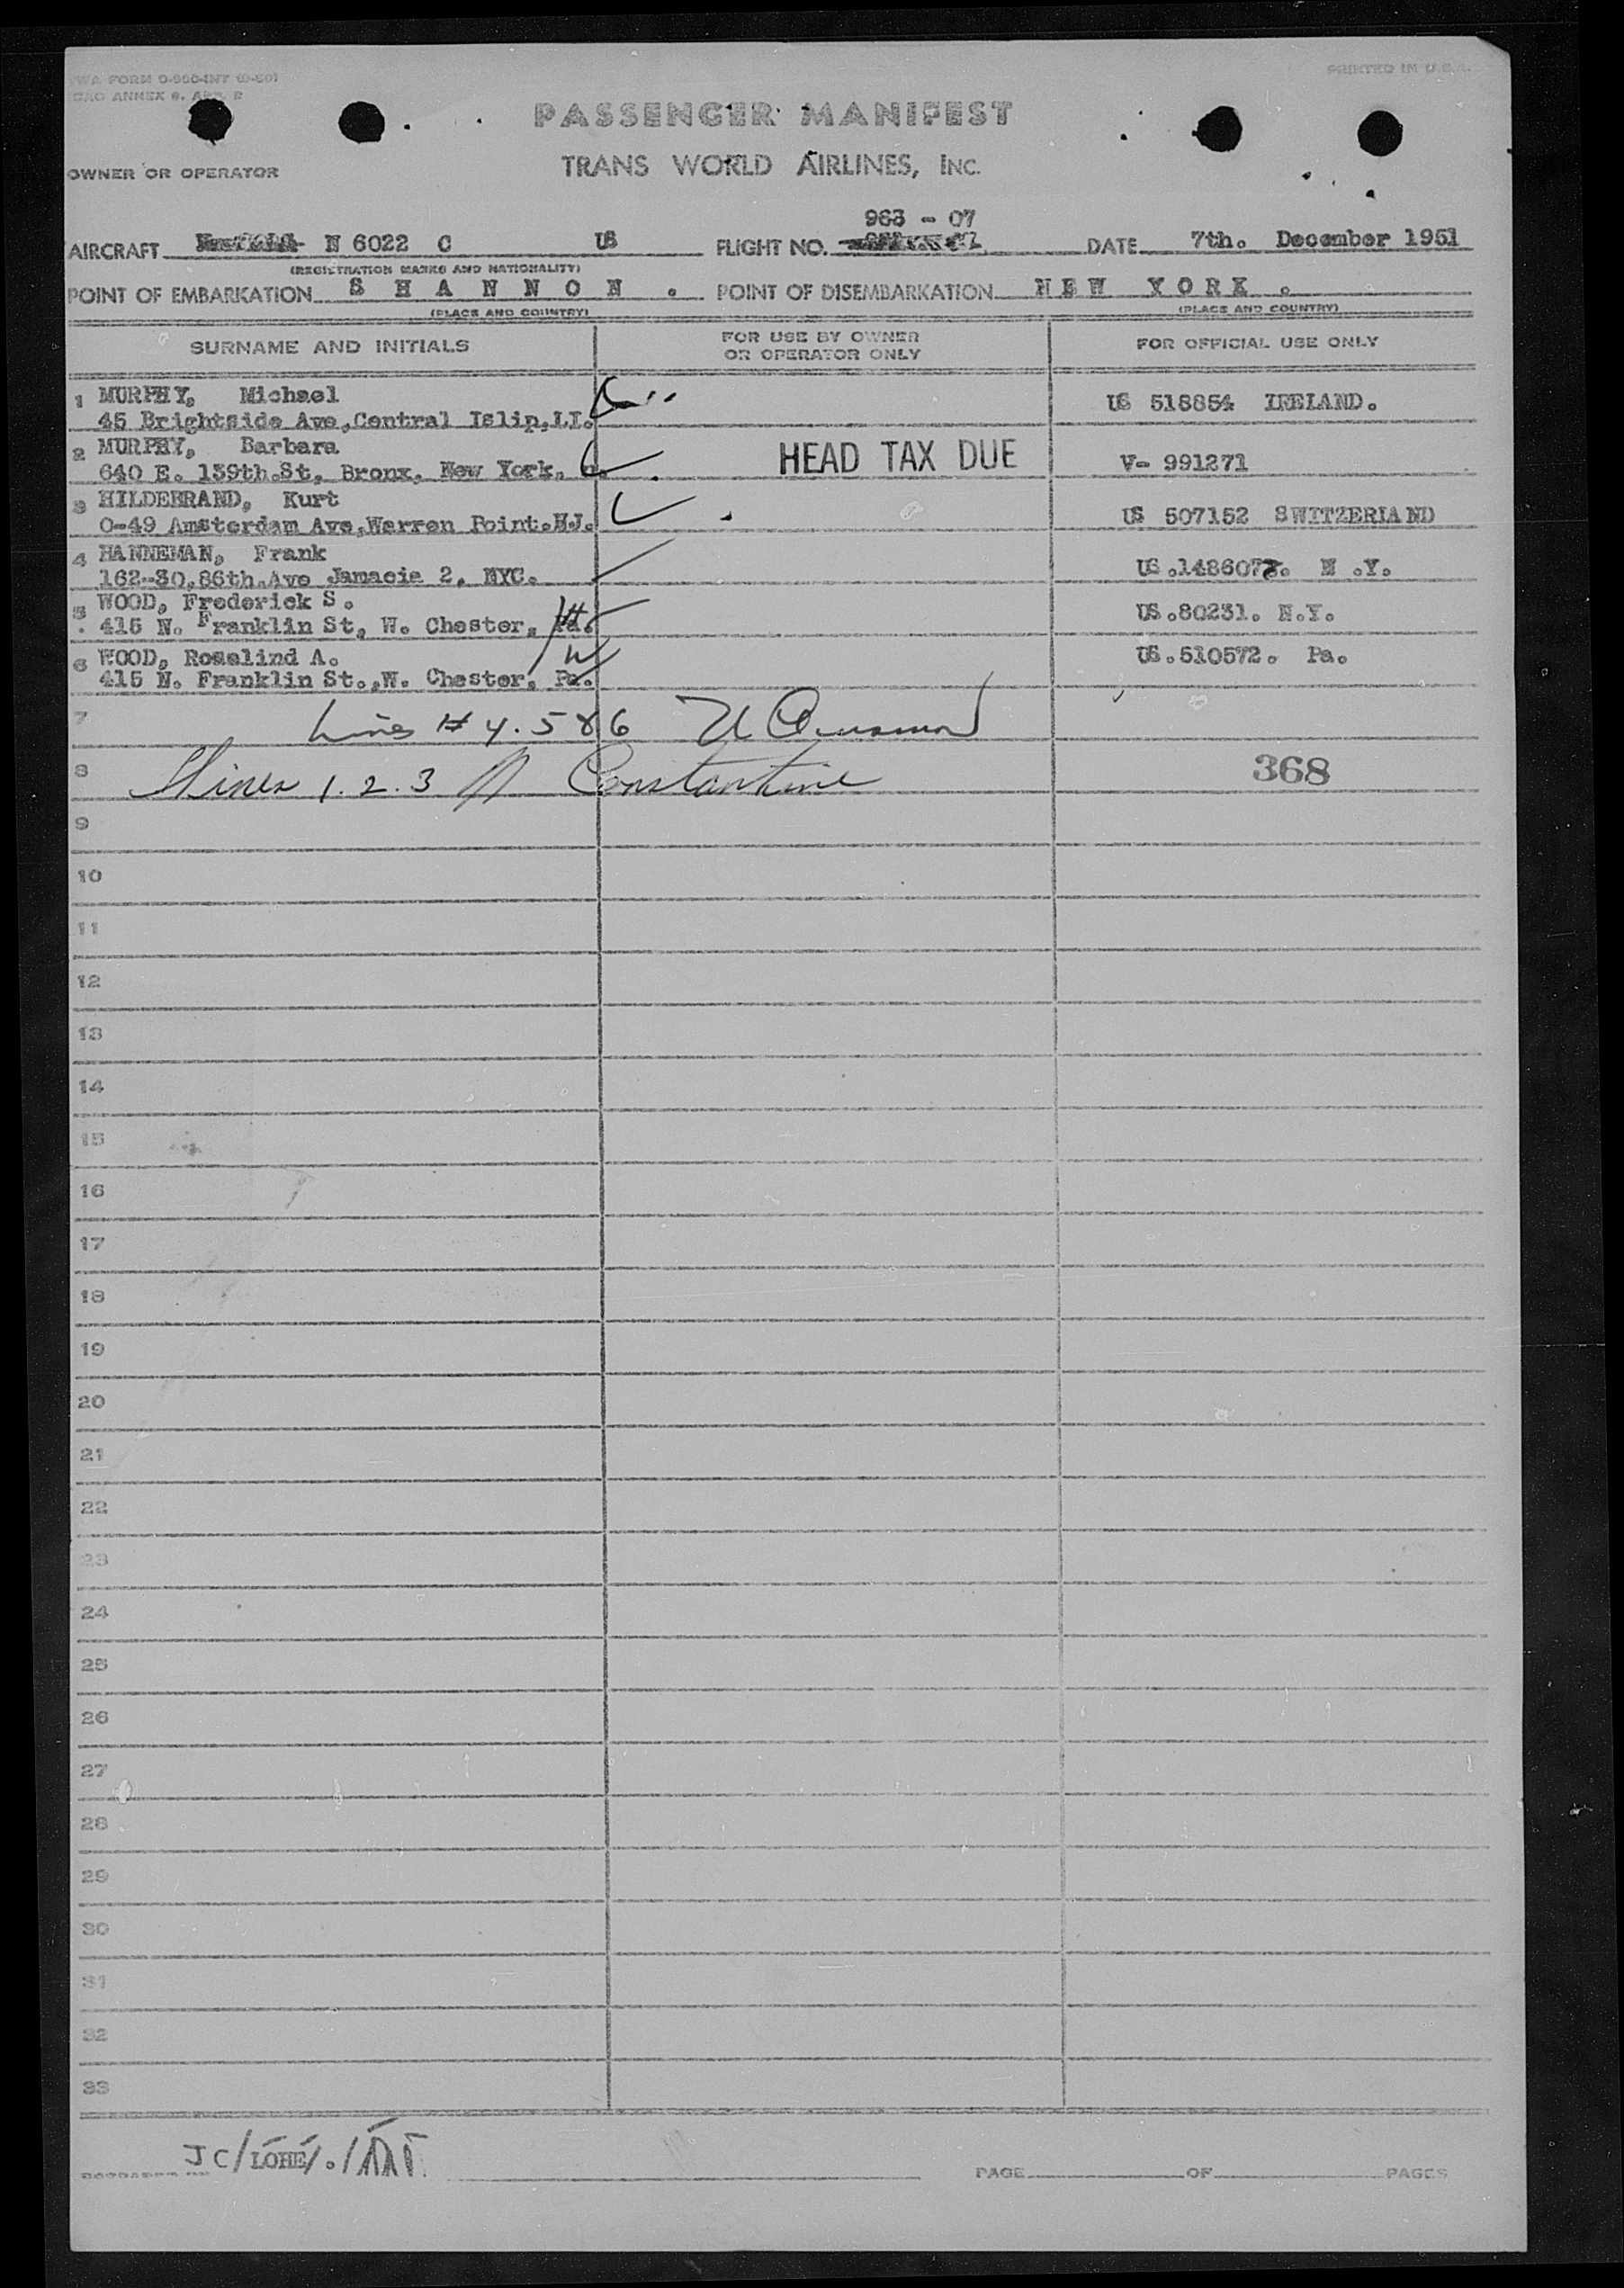 TWA FORM O-960-INT (9-50)
ICAO ANNEX 9, APP. 2
PRINTED IN U.S.A.
PASSENGER MANIFEST
OWNER OR OPERATOR
TRANS WORLD AIRLINES, INC.
963 - 07
AIRCRAFT N 6022 C US FLIGHT NO. DATE 7th. December 1951
(REGISTRATION MARKS AND NATIONALITY)
POINT OF EMBARKATION S H A N N O N . POINT OF DISEMBARKATION N E W Y O R K .
(PLACE AND COUNTRY) (PLACE AND COUNTRY)
SURNAME AND INITIALS FOR USE BY OWNER OR OPERATOR ONLY FOR OFFICIAL USE ONLY
1 MURPHY, Michael US 518854 IRELAND.
45 Brightside Ave,Central Islip,LI.
2 MURPHY, Barbara HEAD TAX DUE V- 991271
640 E. 139th.St, Bronx, New York.
3 HILDEBRAND, Kurt US 507152 SWITZERLAND
0-49 Amsterdam Ave,Warren Point.NJ.
4 HANNEMAN, Frank US.148607 N .Y.
162-30,86th.Ave Jamacia 2, NYC.
5 WOOD, Frederick S. US.80231. N.Y.
. 415 N. Franklin St, W. Chester, Pa.
6 WOOD, Rosalind A. US.510572. Pa.
415 N. Franklin St.,W. Chester, Pa.
7 Lines # 4. 5 & 6
8 Lines 1. 2. 3 Constantine 368
9
10
11
12
13
14
15
16
17
18
19
20
21
22
23
24
25
26
27
28
29
30
31
32
33
JC/LOHE/.
PAGE OF PAGES